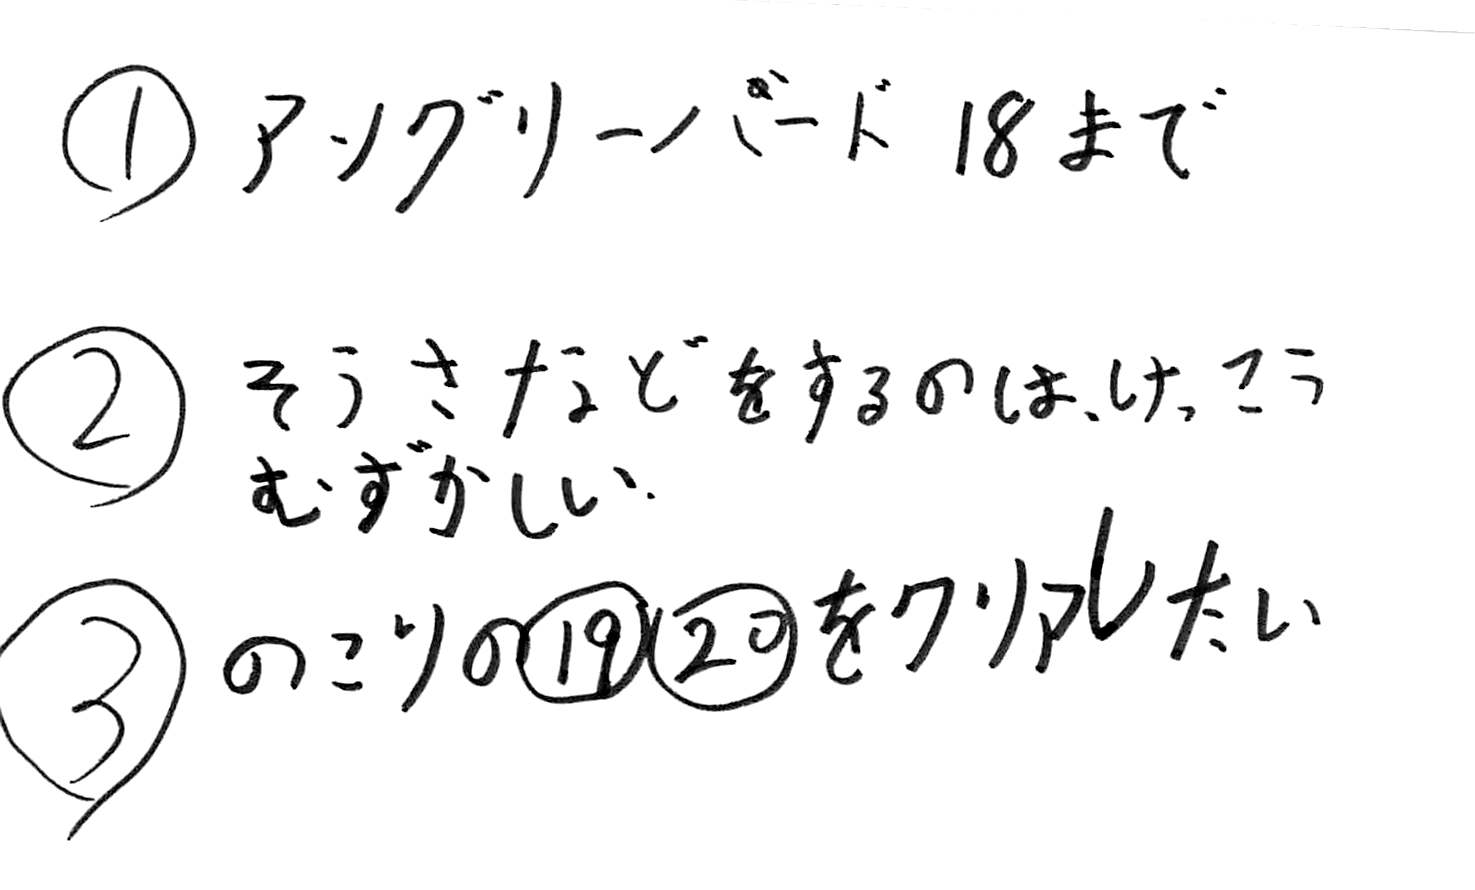 ① アングリーバード 18まで
② そうさなどをするのは、けっこう
むずかしい.
③ のこりの⑲⑳をクリアしたい